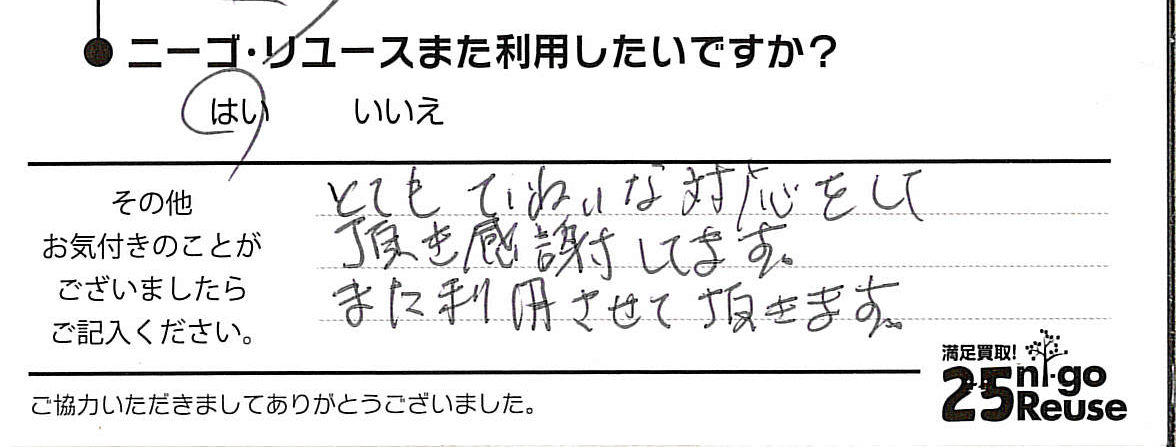 ニーゴ・リユースまた利用したいですか？
はい いいえ
その他
お気付きのことが
ございましたら
ご記入ください。
とても ていねいな対応をして
頂き感謝してます。
また利用させて頂きます。
満足買取!
25 ni-go
Reuse
ご協力いただきましてありがとうございました。